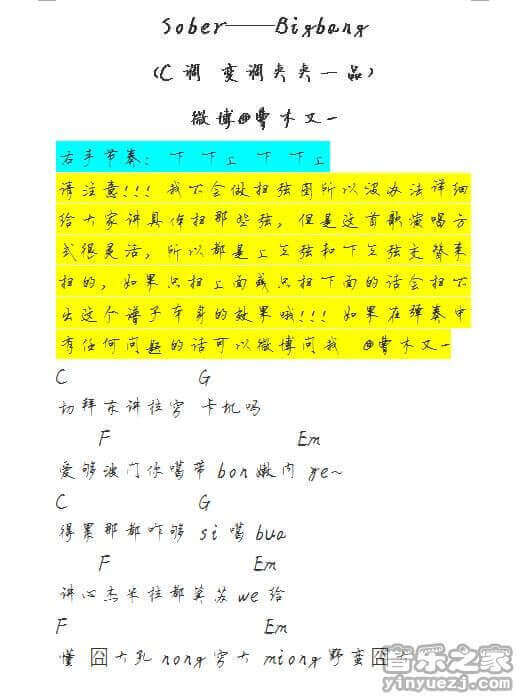 Sober——Bigbang
(C调 变调夹夹一品)
微博@曹木又一
右手节奏: 下 下上 下 下上
请注意!!! 我不会做扫弦图所以没办法详细
给大家讲具体扫那些弦, 但是这首歌演唱方
式很灵活, 所以都是上三弦和下三弦交替来
扫的, 如果只扫上面或只扫下面的话会扫不
出这个谱子本身的效果哦!!! 如果在弹奏中
有任何问题的话可以微博问我 @曹木又一
C G
切拜东讲拉穷 卡机吗
F Em
爱够波门你噶带 bon 嫩内 ye~
C G
得累那都咋够 si 噶 bua
F Em
讲心杰米拉都莫苏 we 给
F Em
懂 囧大乳 nong 穷大 miong 野蛮囧
音乐之家
yinyuezj.com